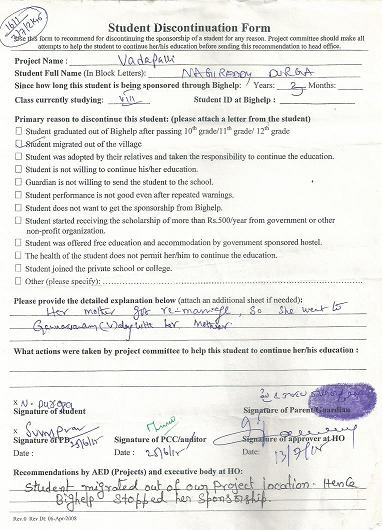 Student Discontinuation Form
Use this form to recommend for discontinuing the sponsorship of a student for any reason. Project committee should make all
attempts to help the student to continue her/his education before sending this recommendation to head office.
Project Name : Vadapalli
Student Full Name (In Block Letters): NAGIREDDY DURGA
Since how long this student is being sponsored through Bighelp: Years: 3 Months:
Class currently studying: VIII Student ID at Bighelp :
Primary reason to discontinue this student: (please attach a letter from the student)
Student graduated out of Bighelp after passing 10th grade/11th grade/ 12th grade
Student migrated out of the village
Student was adopted by their relatives and taken the responsibility to continue the education.
Student is not willing to continue his/her education.
Guardian is not willing to send the student to the school.
Student performance is not good even after repeated warnings.
Student does not want to get the sponsorship from Bighelp.
Student started receiving the scholarship of more than Rs.500/year from government or other
non-profit organization.
Student was offered free education and accommodation by government sponsored hostel.
The health of the student does not permit her/him to continue the education.
Student joined the private school or college.
Other (please specify):
Please provide the detailed explanation below (attach an additional sheet if needed):
Her mother got re-marriage, so she went to
her Mother
What actions were taken by project committee to help this student to continue her/his education :
x N. Durga
Signature of student Signature of Parent/Guardian
x
Signature of PB Signature of PCC/auditor Signature of approver at HO
Date : Date : Date :
Recommendations by AED (Projects) and executive body at HO:
Student migrated out of our Project location. Hence
Bighelp stopped her Sponsorship.
Rev.0 Rev Dt: 06-Apr-2008